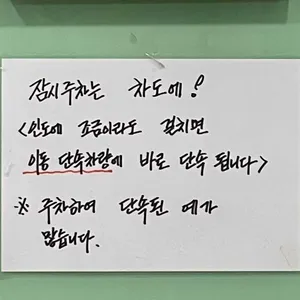 잠시주차는 차도에!
<인도에 조금이라도 걸치면
이동 단속차량에 바로 단속 됩니다>
※ 주차하여 단속된 예가
많습니다.